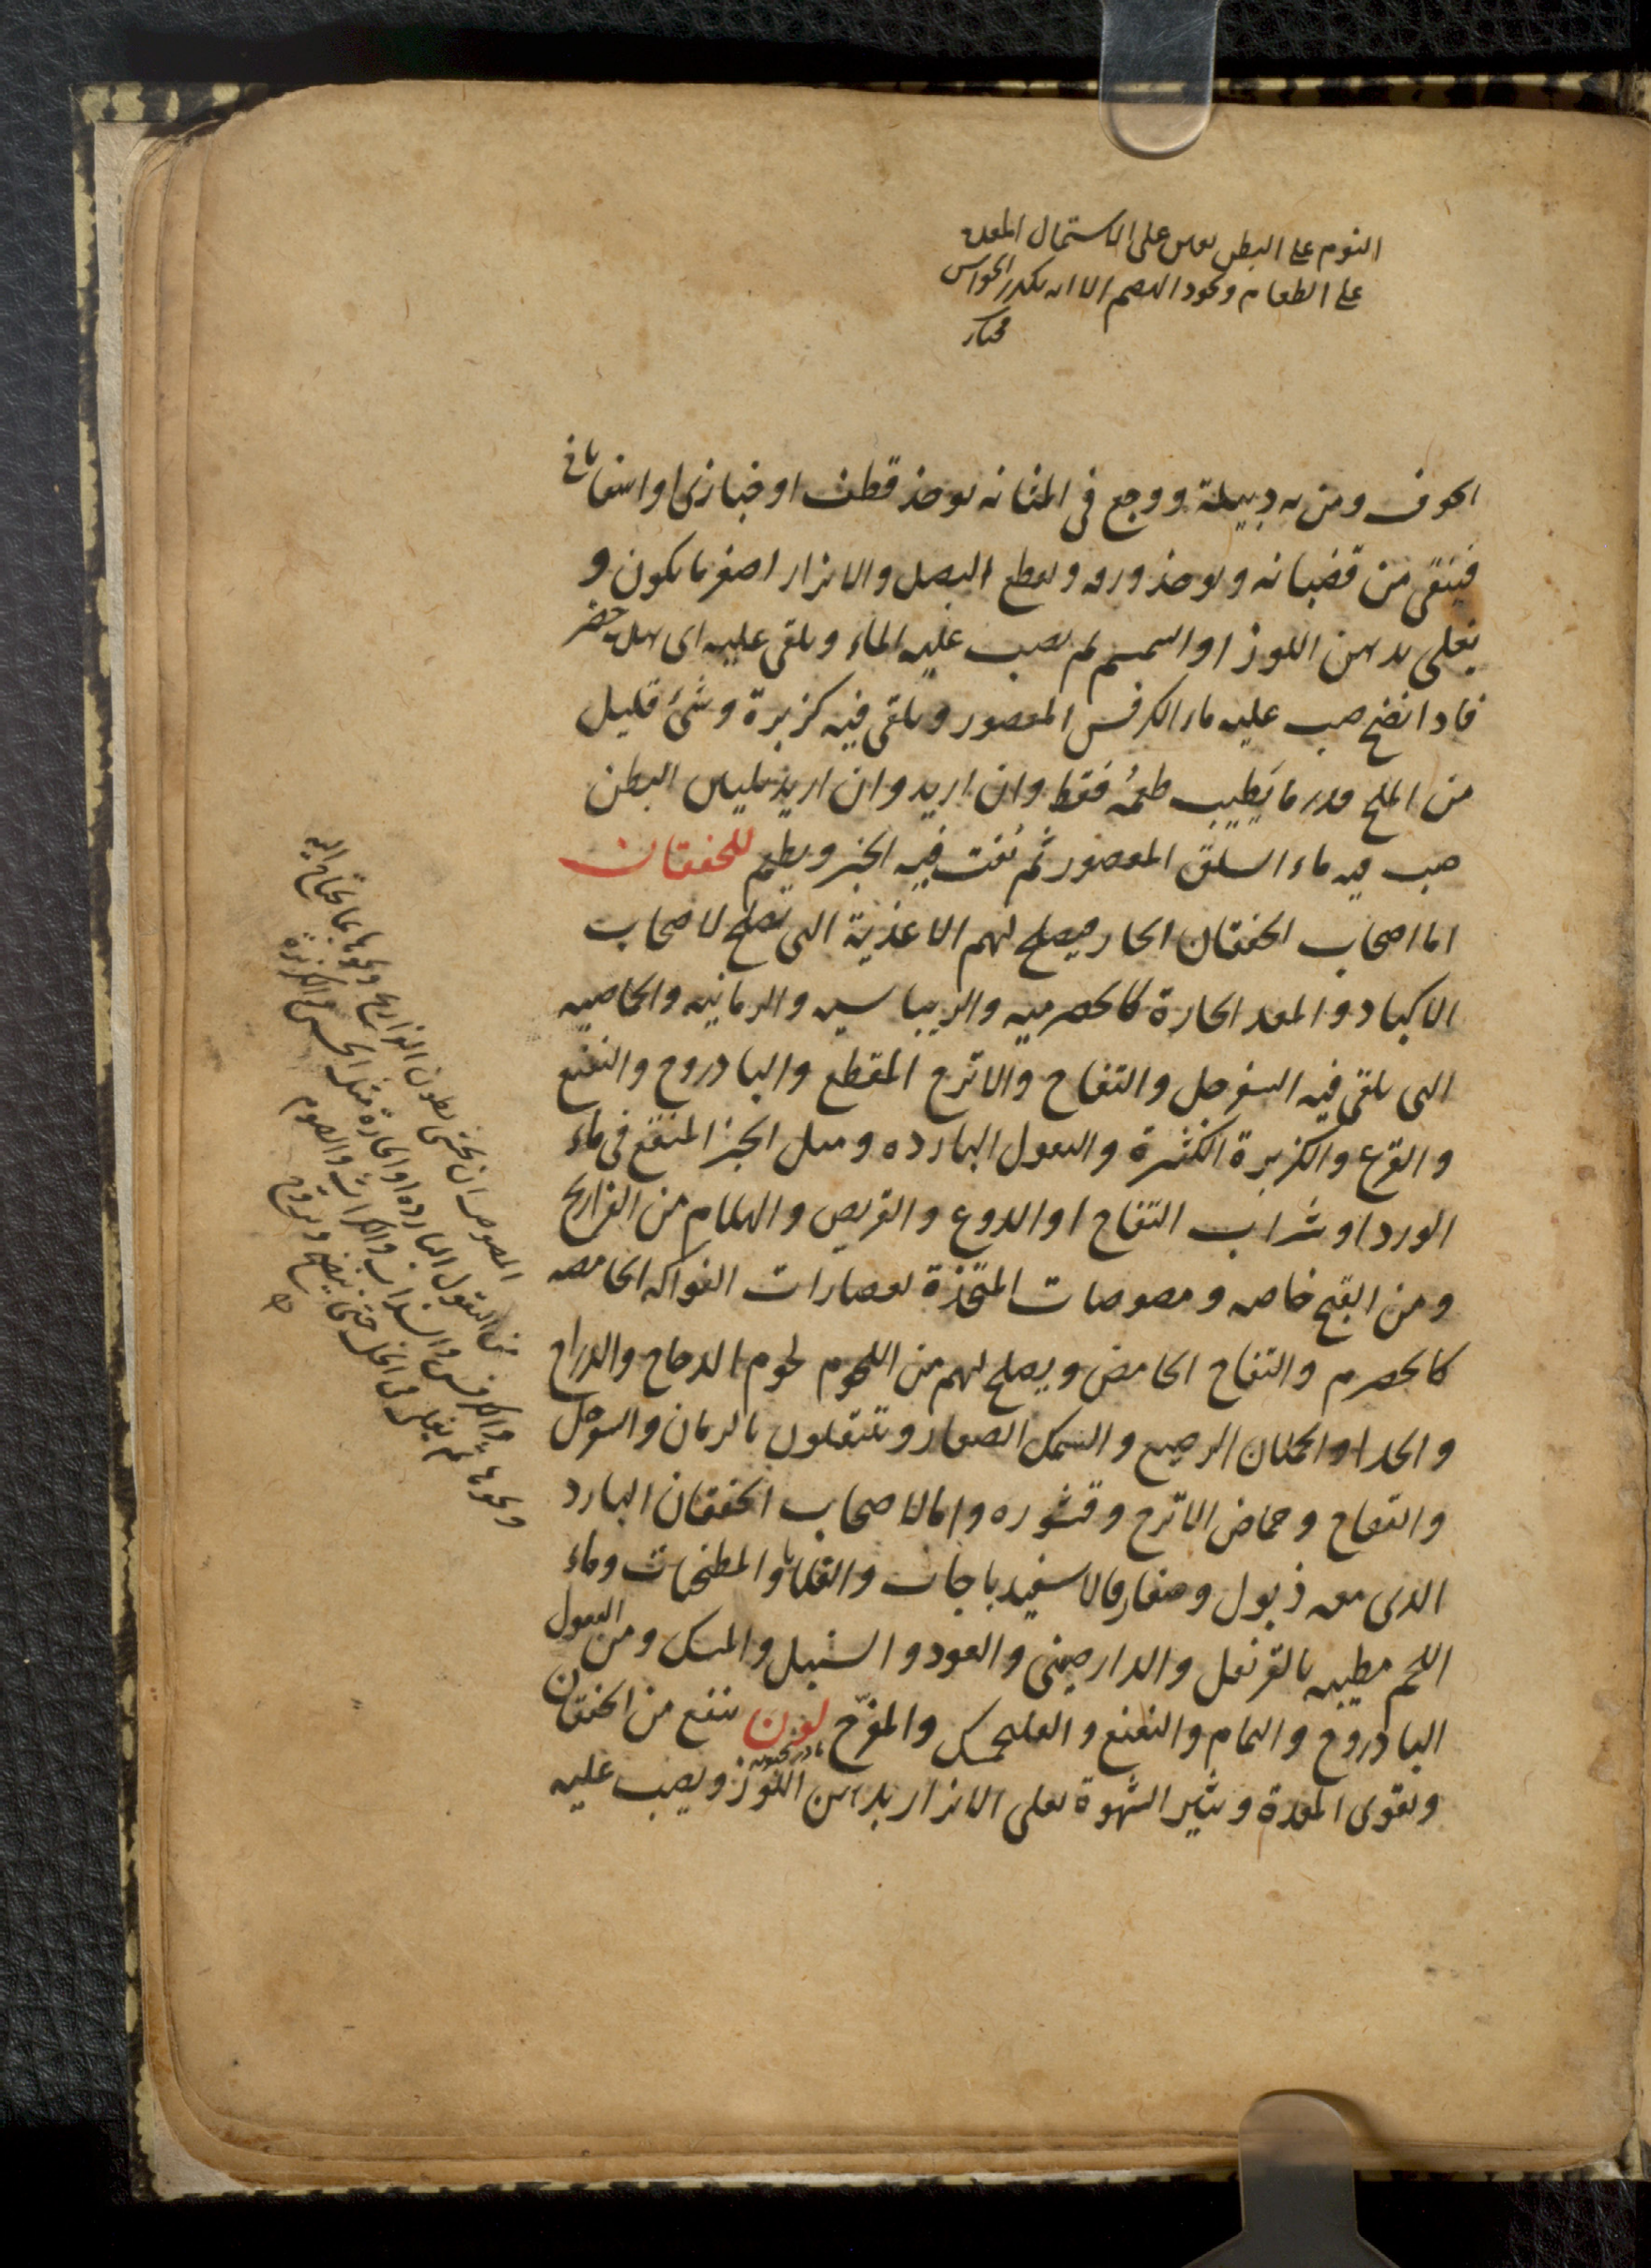 النوم على البطن يعين على اشتمال المعدة
على الطعام ويجود الهضم الا انه يكدر الحواس
مختار
الجوف ومن به دبيلة ووجع فى المثانه يوخذ قطف او خبازى او اسفاناخ
فينقى من قضبانه ويوخذ ورقه ويقطع البصل والابزار اصغر ما يكون و
يغلى بدهن اللوز او السمسم ثم يصب عليه الماء ويلقى عليه اى بقل حضر
فاذا نضج صب عليه ماء الكرفس المعصور ويلقى فيه كزبرة وشئ قليل
من الملح قدر ما يَطيب طعمُه فقط وان اريد وان اريد تليين البطن
صب فيه ماء السلق المعصور ثم يفت فيه الخبز ويطعم للخفقان
اما اصحاب الخفقان الحار فيصلح لهم الاغذية التى تصلح لاصحاب
الاكباد والمعد الحارة كالحصرميه والريباسيه والرمانيه والحماضيه
التى يلقى فيه السفرجل والتفاح والاترج المقطع والبادروج والنعنع
والقرع والكزبرة الكثيرة والبقول البارده ومثل الخبز المنقع فى ماء
الورد او شراب التفاح او الدوغ والقريص والهلام من الفراريج
ومن القبج خاصه ومصوصات المتخذة بعصارات الفواكه الحامضه
كالحصرم والتفاح الحامض ويصلح لهم من اللحوم لحوم الدجاج والدراج
والجداء والحملان الرضيع والسمك الصغار ويتنقلون بالرمان والسفرجل
والتفاح وحماض الاترج وقشوره واما لاصحاب الخفقان البارد
الذى معه ذبول وصفار فالاسفيدباجات والقلايا والمطجنات وماء
اللحم مطيبه بالقرنفل والدارصينى والعود والسنبل والمسك ومن البقول
البادروج والنمام والنعنع والفلنجمشك والمفرّح لون ينفع من الخفقان
بادرنجبويه
ويقوى المعدة ويثير الشهوة يغلى الابزار بدهن اللوز ويصب عليه
المصوص ان يحشى بطون الفراريج ونحوها بما يحتاج اليه
من البقول البارده او الحارة مثل الخس والكزبرة
والكرفس والسذاب والكراث والثوم
ونحوها ثم يغلى فى الخل حتى ينضج ويروح